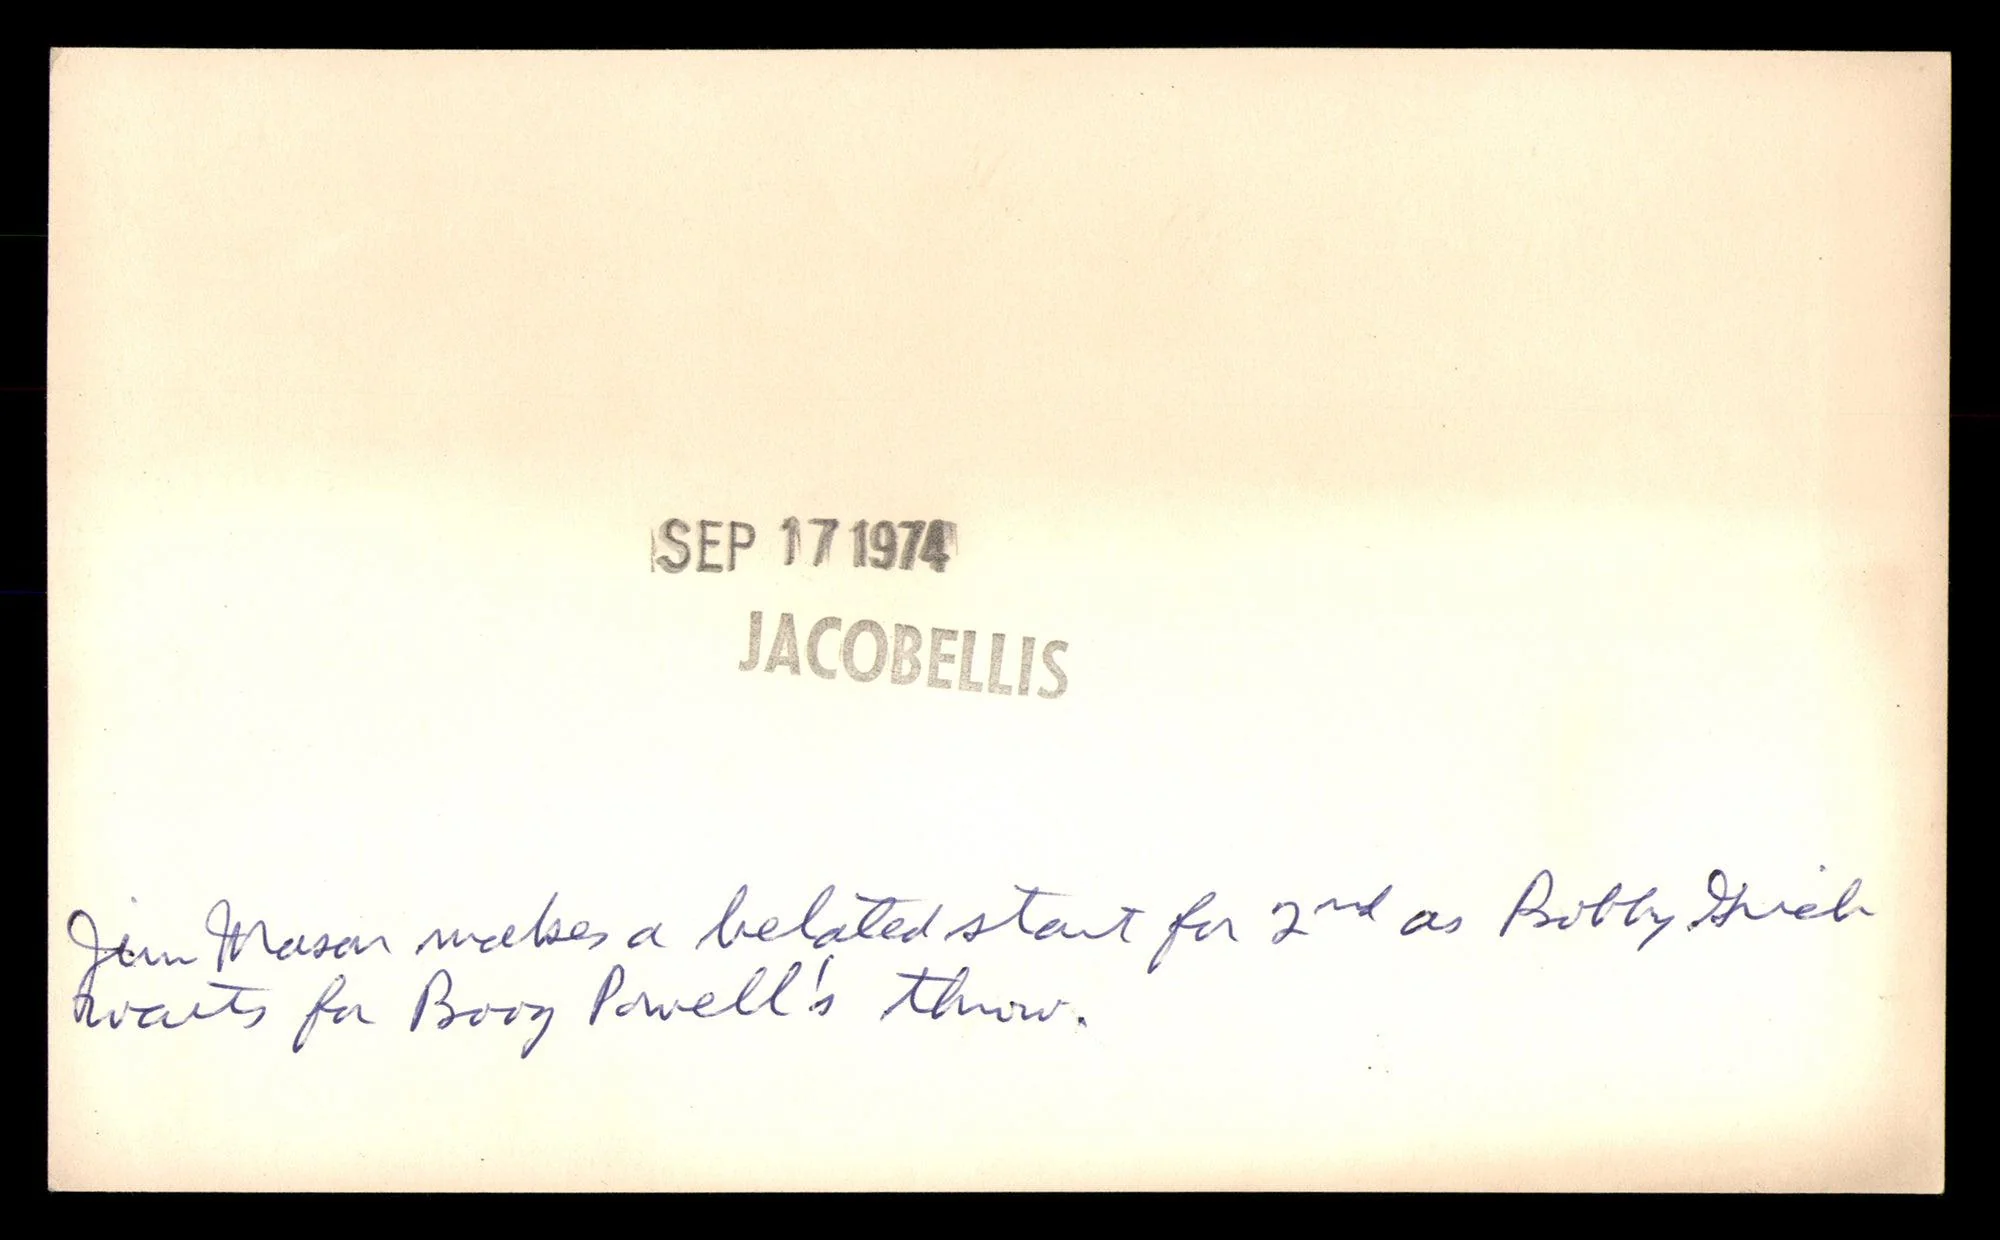 SEP 17 1974
JACOBELLIS
Jim Mason makes a belated start for 2nd as Bobby Grich
waits for Boog Powell's throw.